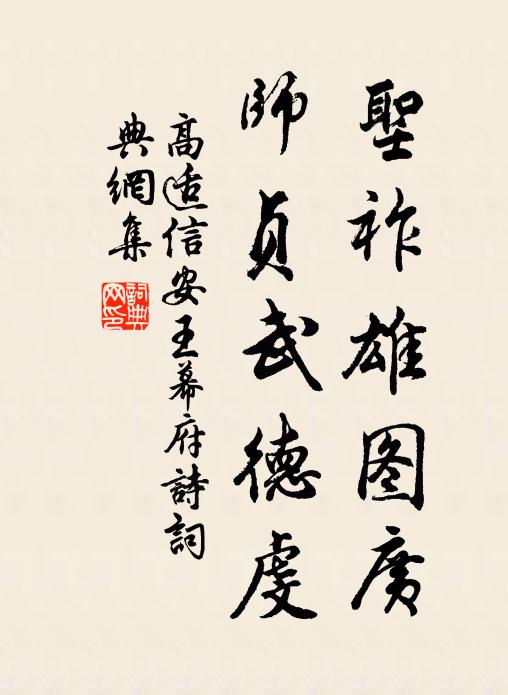 聖祚雄图廣
師貞武德虔
高适信安王幕府詩詞
典網集
詞典
网印